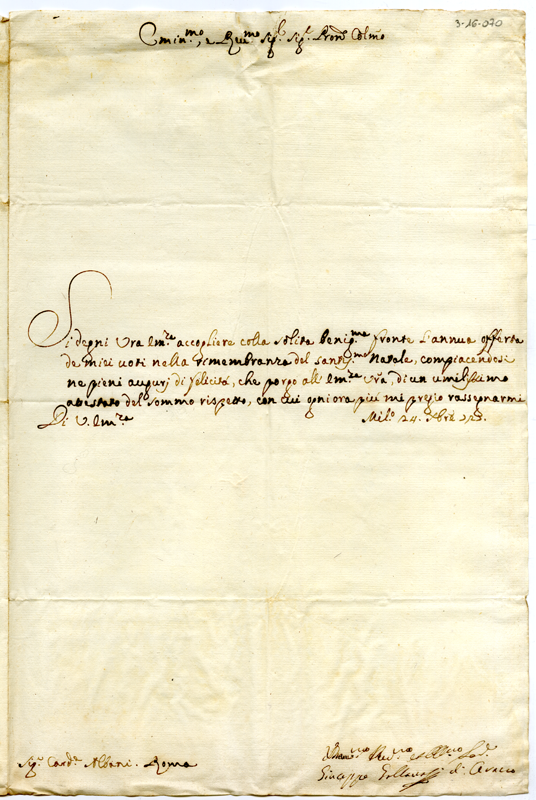 3-16-070
Emin.mo, e Rev.mo Sig.r Sig.r Pron.e Colmo
Si degni Vra Em.za accogliere colla solita benig.ma fronte l'annua offerta
de miei voti nella rimembranza del santis.mo Natale, compiacendosi
ne pieni augurj di felicità, che porgo all' Em.za Vra, di un umilissimo
attestato del sommo rispetto, con cui ogniora più mi pregio rassegnarmi
Di V. Em.za
Mil.o 24. Xbre
Sig.r Card.e Albani. Roma
Giuseppe